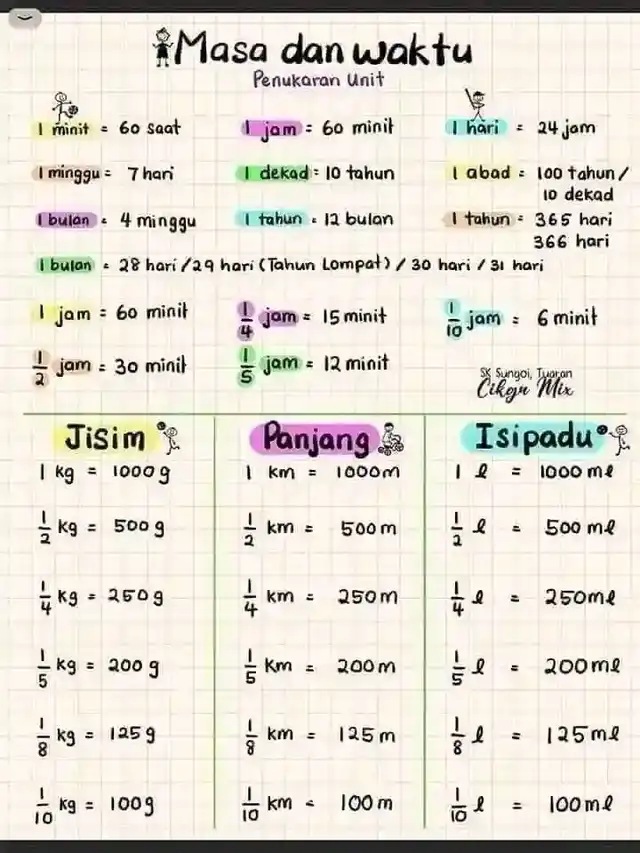 Masa dan waktu
Penukaran Unit
1 minit = 60 saat
1 jam = 60 minit
1 hari = 24 jam
1 minggu = 7 hari
1 dekad = 10 tahun
1 abad = 100 tahun /
10 dekad
1 bulan = 4 minggu
1 tahun = 12 bulan
1 tahun = 365 hari
366 hari
1 bulan = 28 hari / 29 hari (Tahun Lompat) / 30 hari / 31 hari
1 jam = 60 minit
1/4 jam = 15 minit
1/10 jam = 6 minit
1/2 jam = 30 minit
1/5 jam = 12 minit
SK Sungoi, Tuaran
Cikgu Mix
Jisim
Panjang
Isipadu
1 kg = 1000 g
1 km = 1000 m
1 l = 1000 ml
1/2 kg = 500 g
1/2 km = 500 m
1/2 l = 500 ml
1/4 kg = 250 g
1/4 km = 250 m
1/4 l = 250 ml
1/5 kg = 200 g
1/5 km = 200 m
1/5 l = 200 ml
1/8 kg = 125 g
1/8 km = 125 m
1/8 l = 125 ml
1/10 kg = 100 g
1/10 km = 100 m
1/10 l = 100 ml